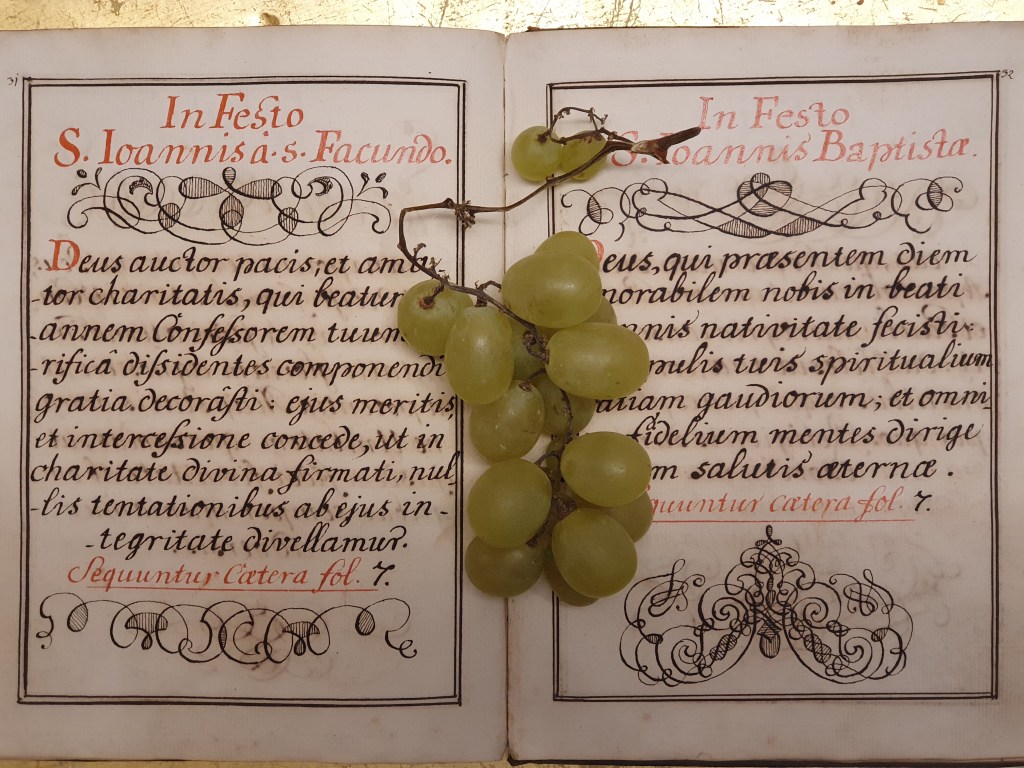 31
In Festo
S. Ioannis à. s. Facundo.
Deus auctor pacis, et ama
-tor charitatis, qui beatum
-annem Confessorem tuum
-rificâ dissidentes componendi
gratia decorâsti: ejus meritis,
et intercessione concede, ut in
charitate divina firmati, nul-
-lis tentationibus ab ejus in-
-tegritate divellamur.
Sequuntur Cætera fol. 7.
32
In Festo
S. Ioannis Baptistæ.
Deus, qui præsentem diem
norabilem nobis in beati
annis nativitate fecisti:
pulis tuis spiritualium
atiam gaudiorum; et omni-
fidelium mentes dirige
m salutis æternæ.
Sequuntur cætera fol. 7.